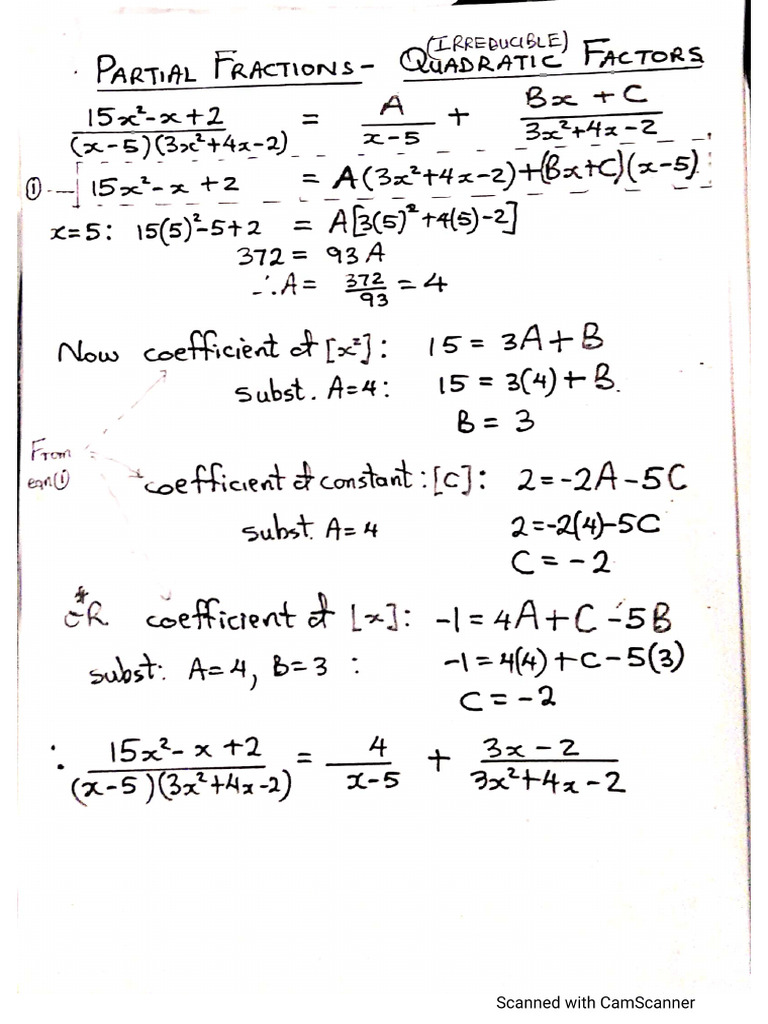 (IRREDUCIBLE)
PARTIAL FRACTIONS - QUADRATIC FACTORS
(15x²-x+2)/((x-5)(3x²+4x-2)) = A/(x-5) + (Bx+C)/(3x²+4x-2)
① 15x²-x+2 = A(3x²+4x-2)+(Bx+C)(x-5)
x=5: 15(5)²-5+2 = A[3(5)²+4(5)-2]
372 = 93A
∴A = 372/93 = 4
Now coefficient of [x²]: 15 = 3A+B
subst. A=4: 15 = 3(4)+B.
B = 3
From
eqn①
coefficient of constant:[C]: 2=-2A-5C
subst. A=4 2=-2(4)-5C
C = -2
* OR coefficient of [x]: -1=4A+C-5B
subst: A=4, B=3 : -1=4(4)+C-5(3)
C = -2
∴ (15x²-x+2)/((x-5)(3x²+4x-2)) = 4/(x-5) + (3x-2)/(3x²+4x-2)
Scanned with CamScanner